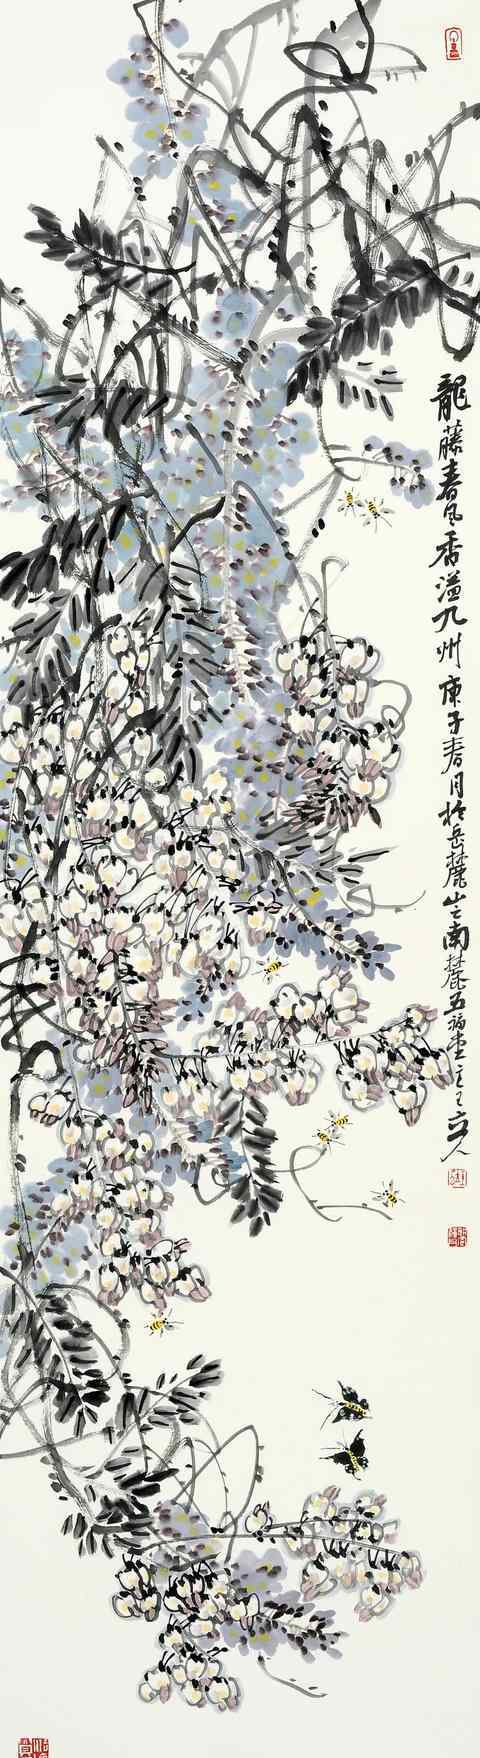 龍藤春風香溢九州庚子春月於岳麓山之南麓五福堂主王立人